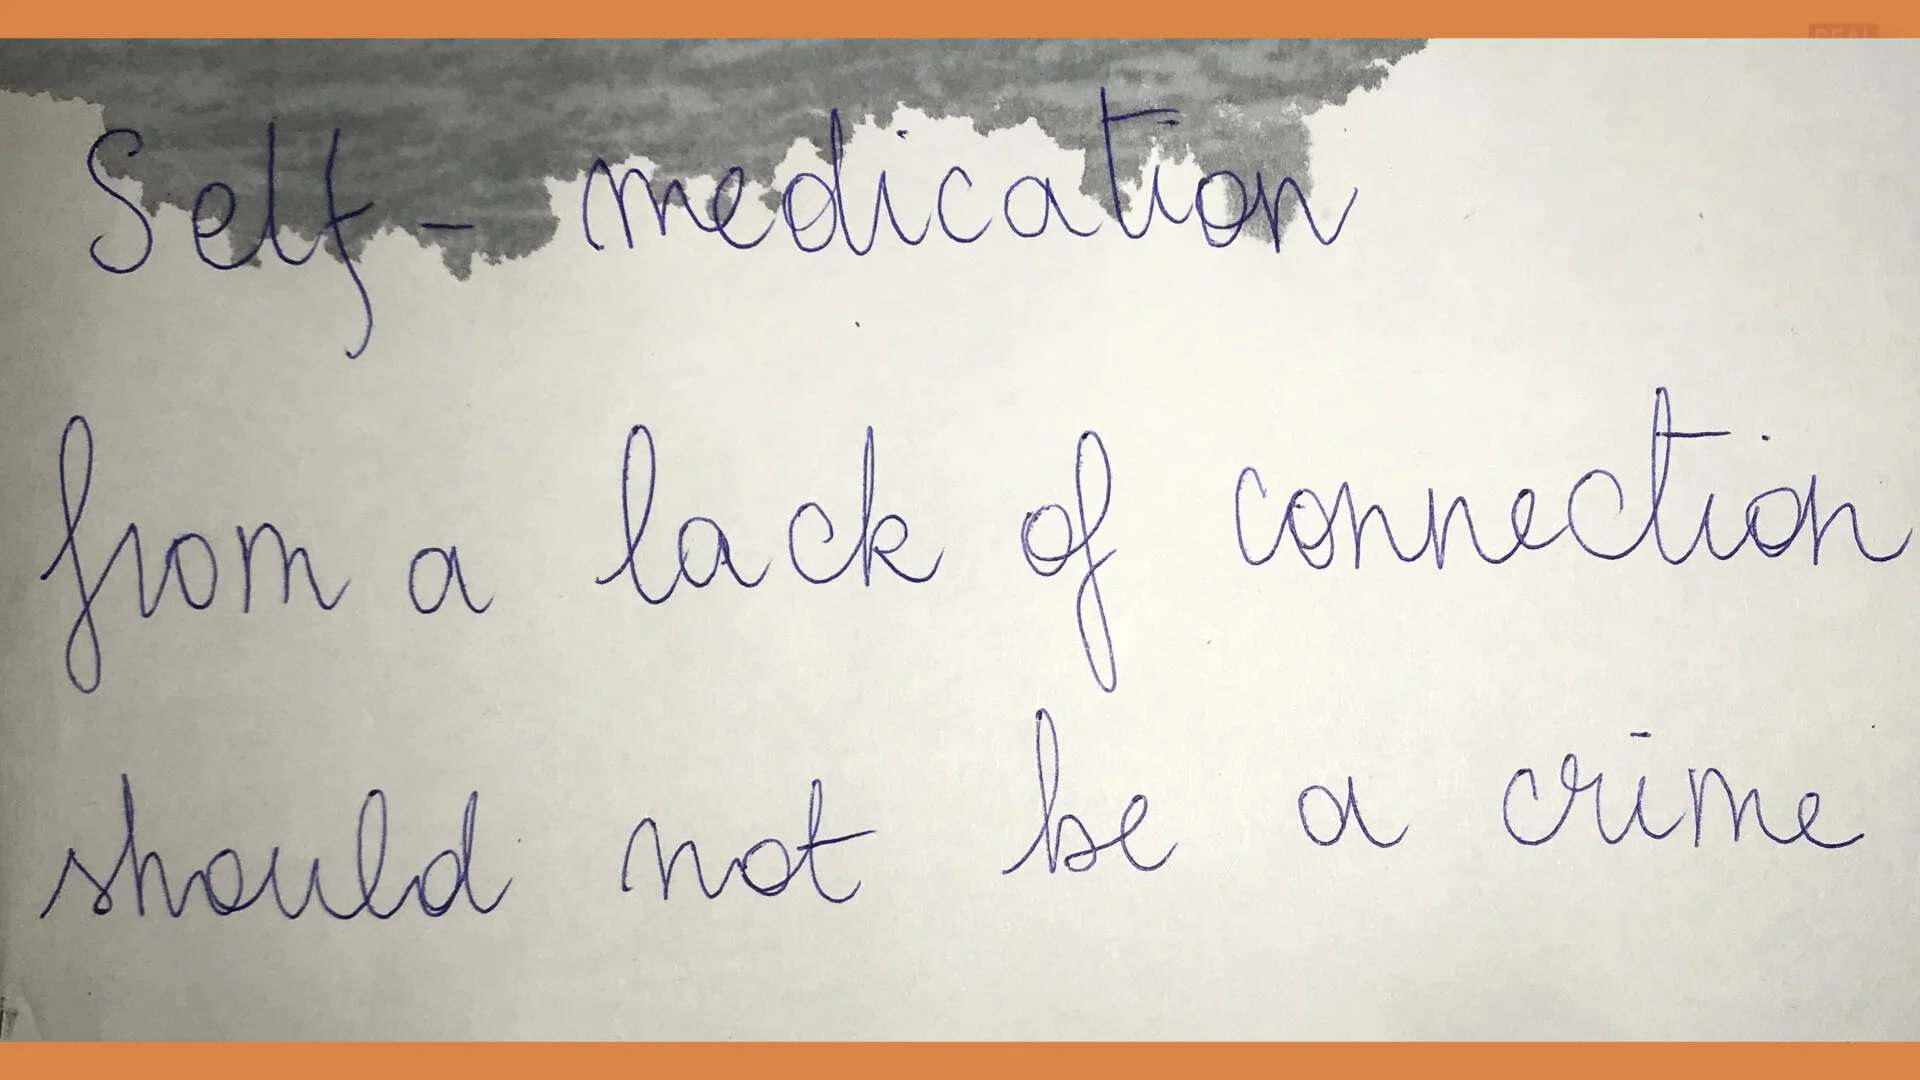 Self-medication
from a lack of connection
should not be a crime